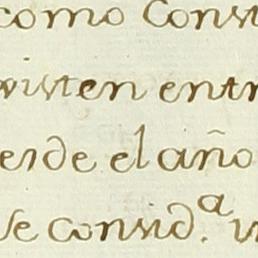 como Const
existen entr
desde el año
se consid.ª